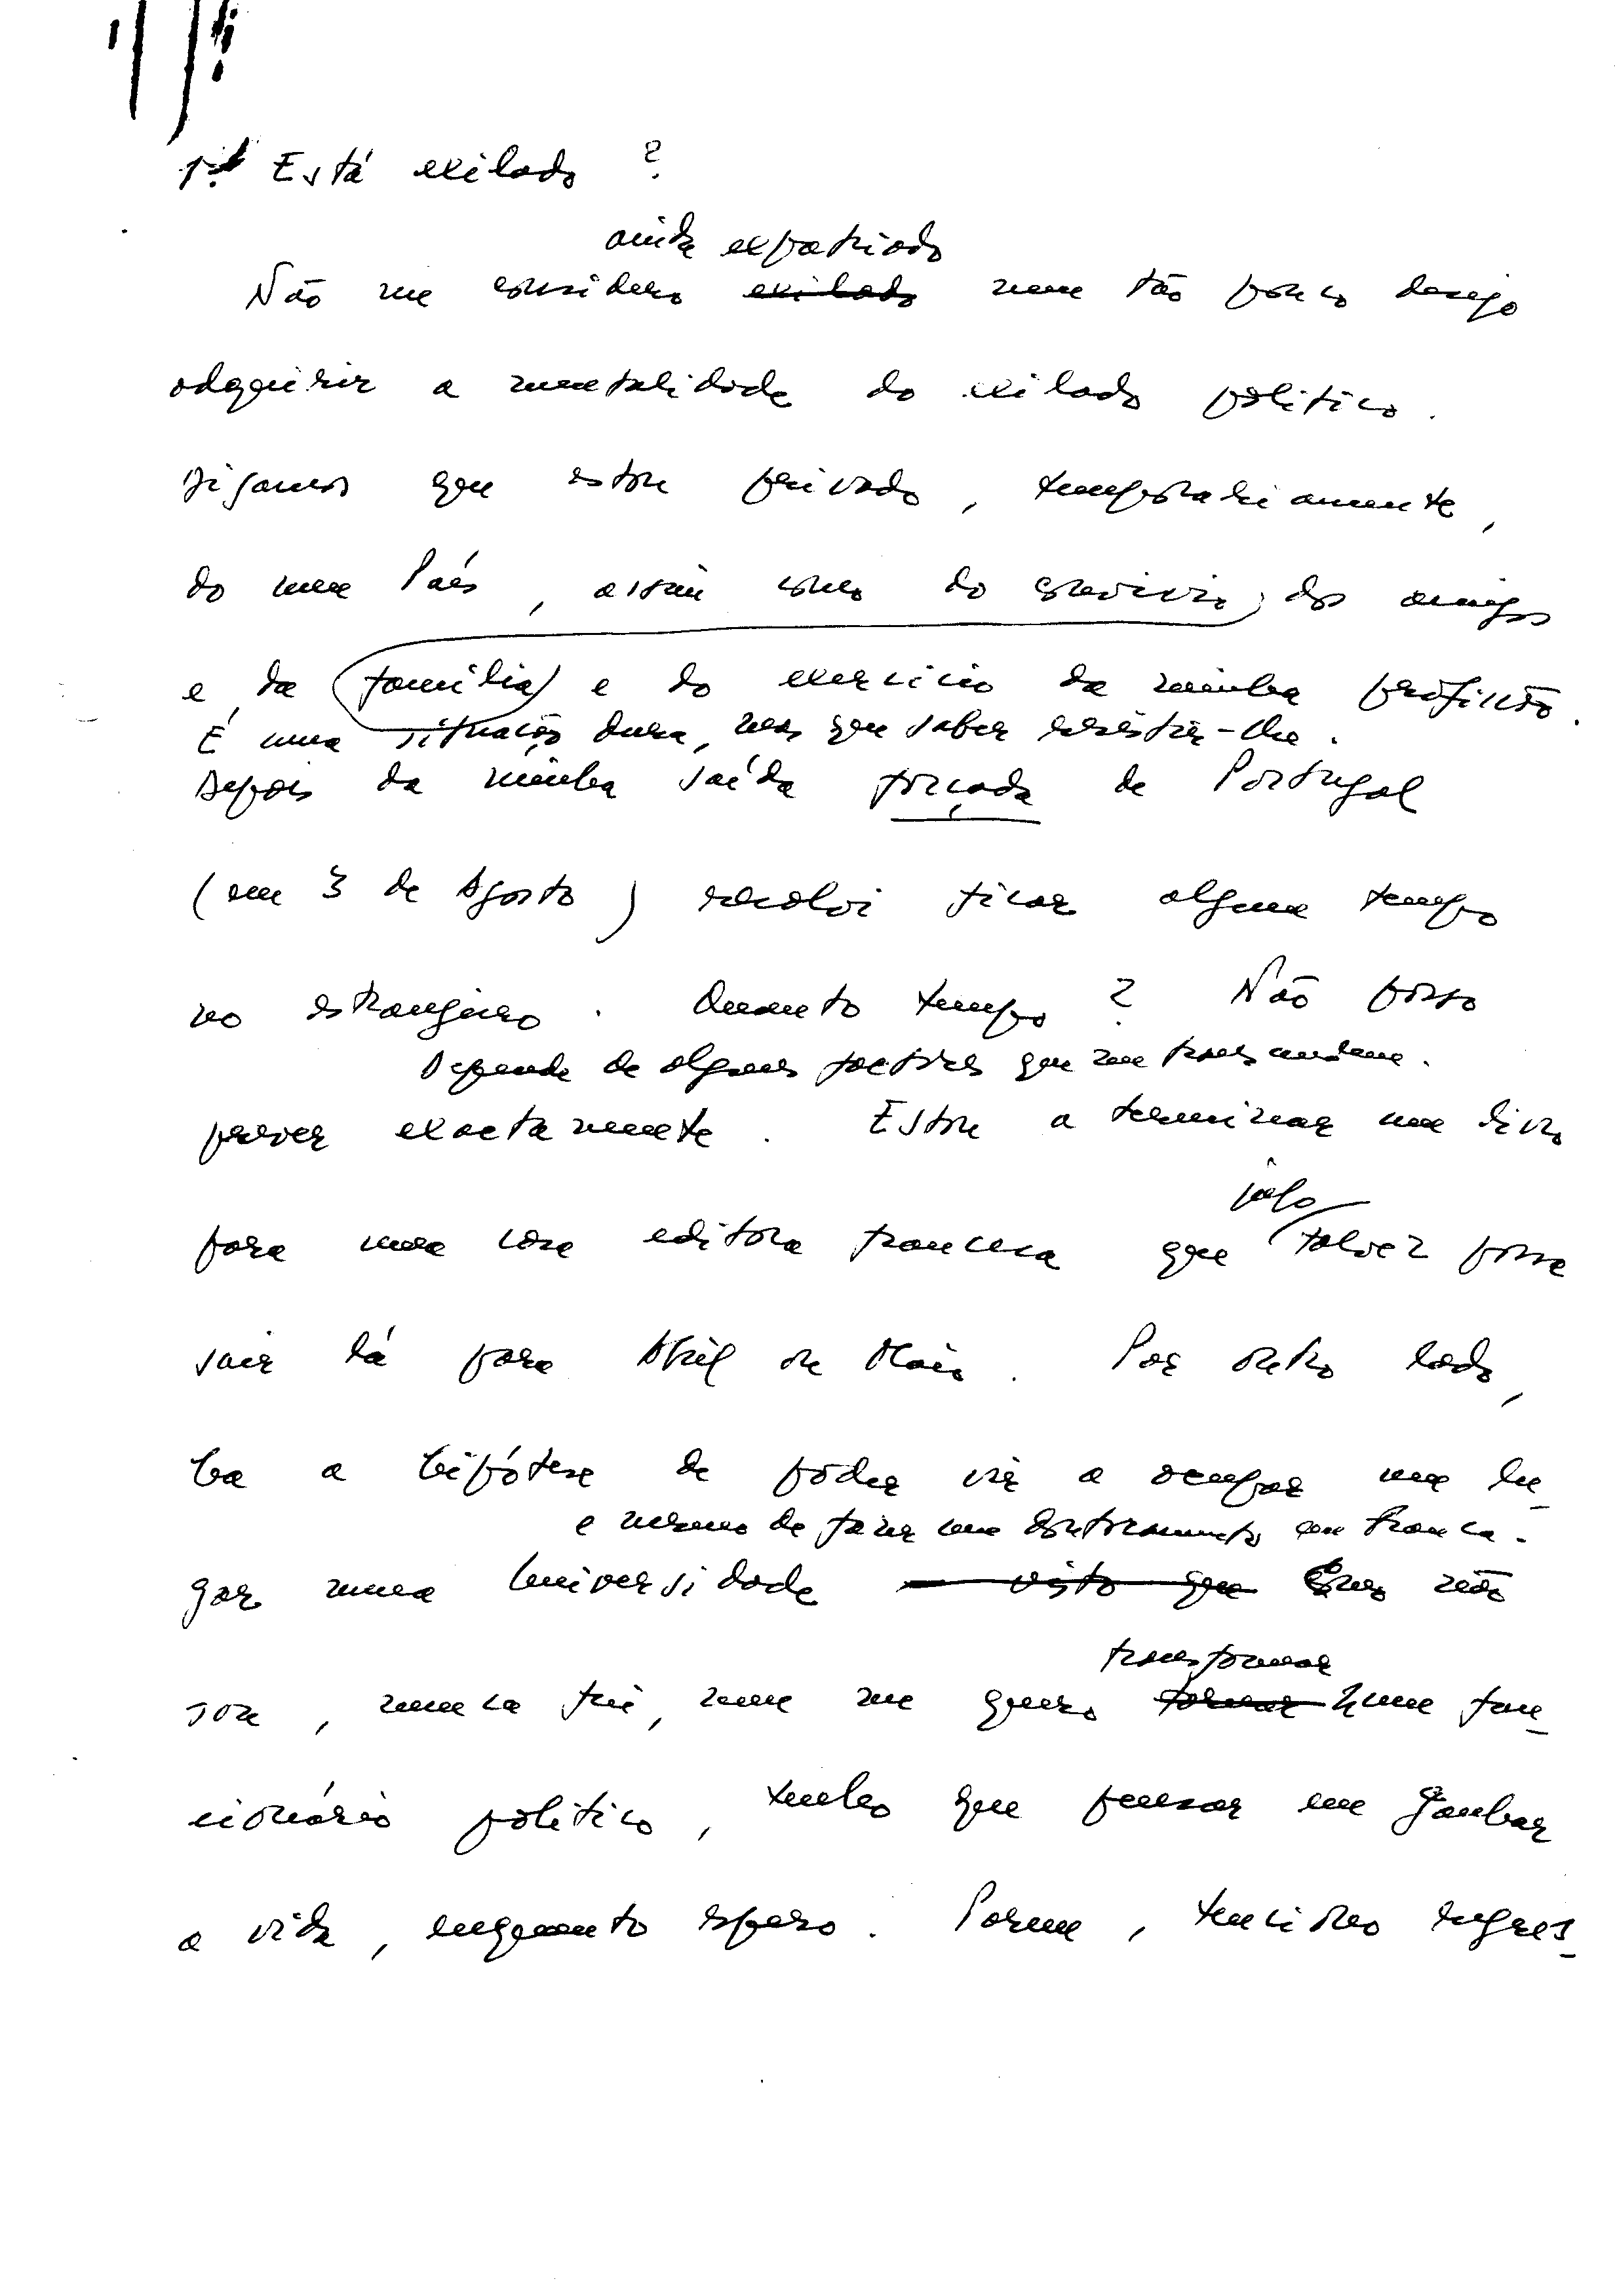 1. Está exilado ?
ainda expatriado
Não me considero exilado nem tão pouco desejo
adquirir a mentalidade do exilado politico.
Digamos que estou privado, temporariamente,
do meu País, assim como do convívio dos amigos
e da família e do exercicio da minha profissão.
É uma situação dura, mas que saber resistir-lhe.
Depois da minha saída forçada de Portugal
(em 3 de Agosto) resolvi ficar algum tempo
no estrangeiro. Quanto tempo ? Não posso
Depende de alguns factores que me transcendem.
prever exactamente. Estou a terminar um livro
julgo
para uma casa editora francesa que talvez possa
sair lá para Abril ou Maio. Por outro lado,
ha a hipótese de poder vir a ocupar um lu-
e mesmo de fazer um doutoramento em França.
gar numa Universidade visto que Como não
transformar
sou, nunca fui, nem me quero tornar num fun-
cionário politico, tenho que pensar em ganhar
a vida, enquanto espero. Porem, tenciono regres-